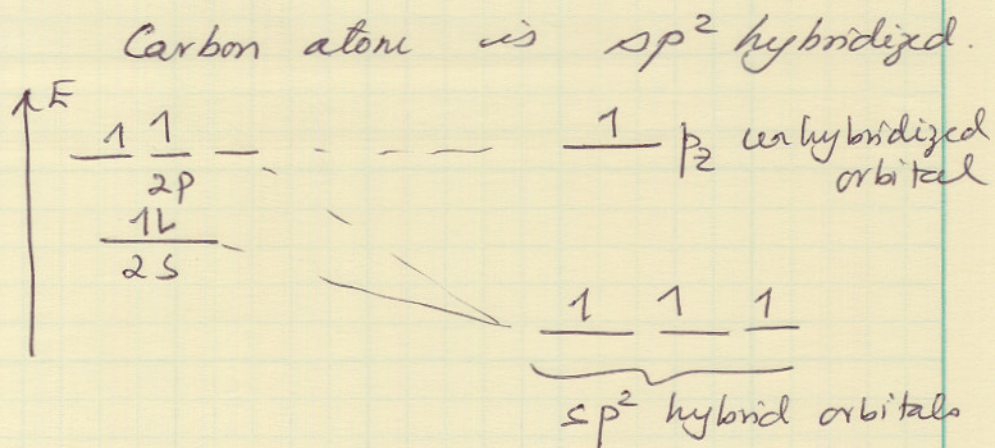 Carbon atom is sp² hybridized.
E
1 1
2p
1L
2s
1 pz unhybridized
orbital
1 1 1
sp² hybrid orbitals